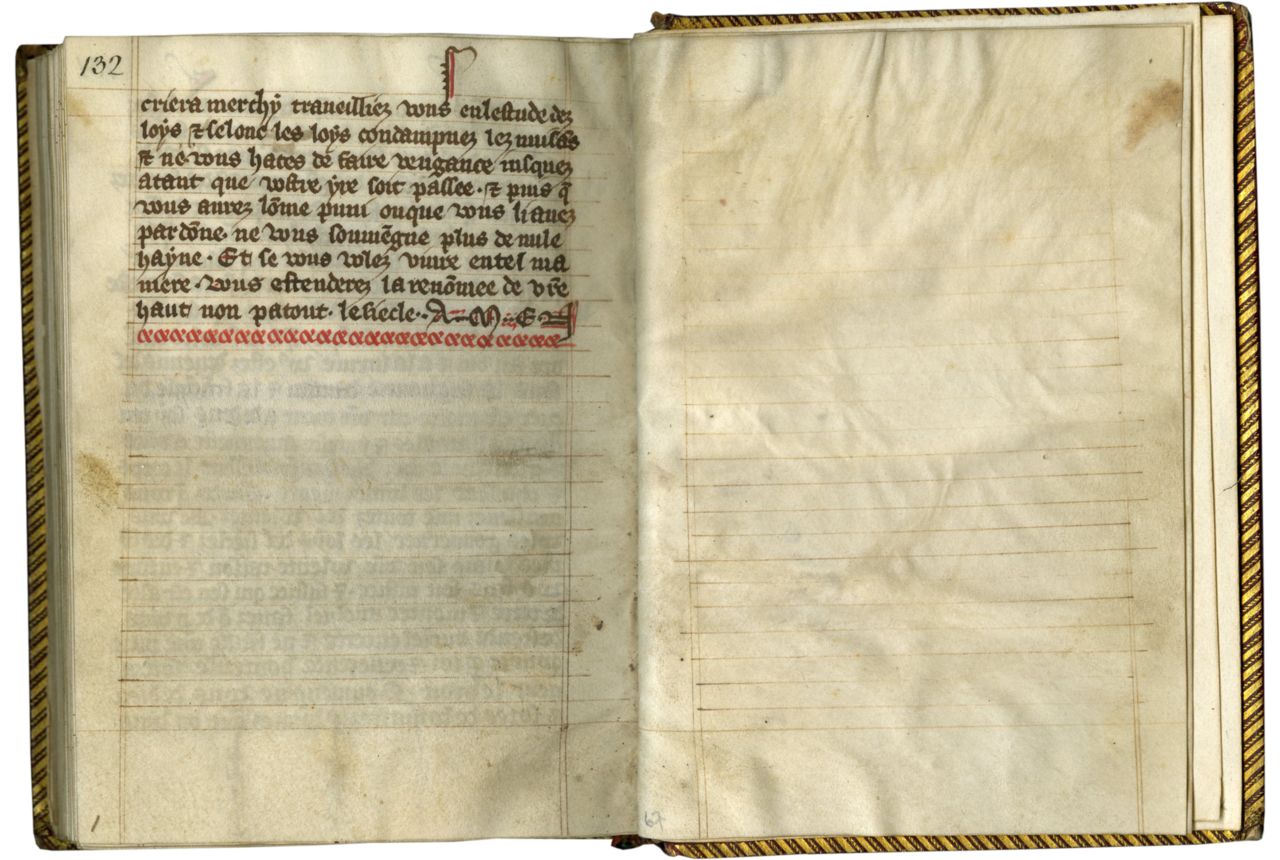 132
criera merchÿ traueilliez vous en lestude dez
loÿs ⁊ selonc les loÿs condampnez lez mufais
Et ne vous hates de faire vengance iusquez
atant que vostre ÿre soit passee · ⁊ puis q̄
vous aurez lōme puni ou que vous li auez
pardōne · ne vous souuēgne plus de nule
haÿne · Et se vous volez viure en tel ma
niere · vous estenderez la renōmee de vr̄e
haut non partout · le siecle · A · M · E · N
1
67